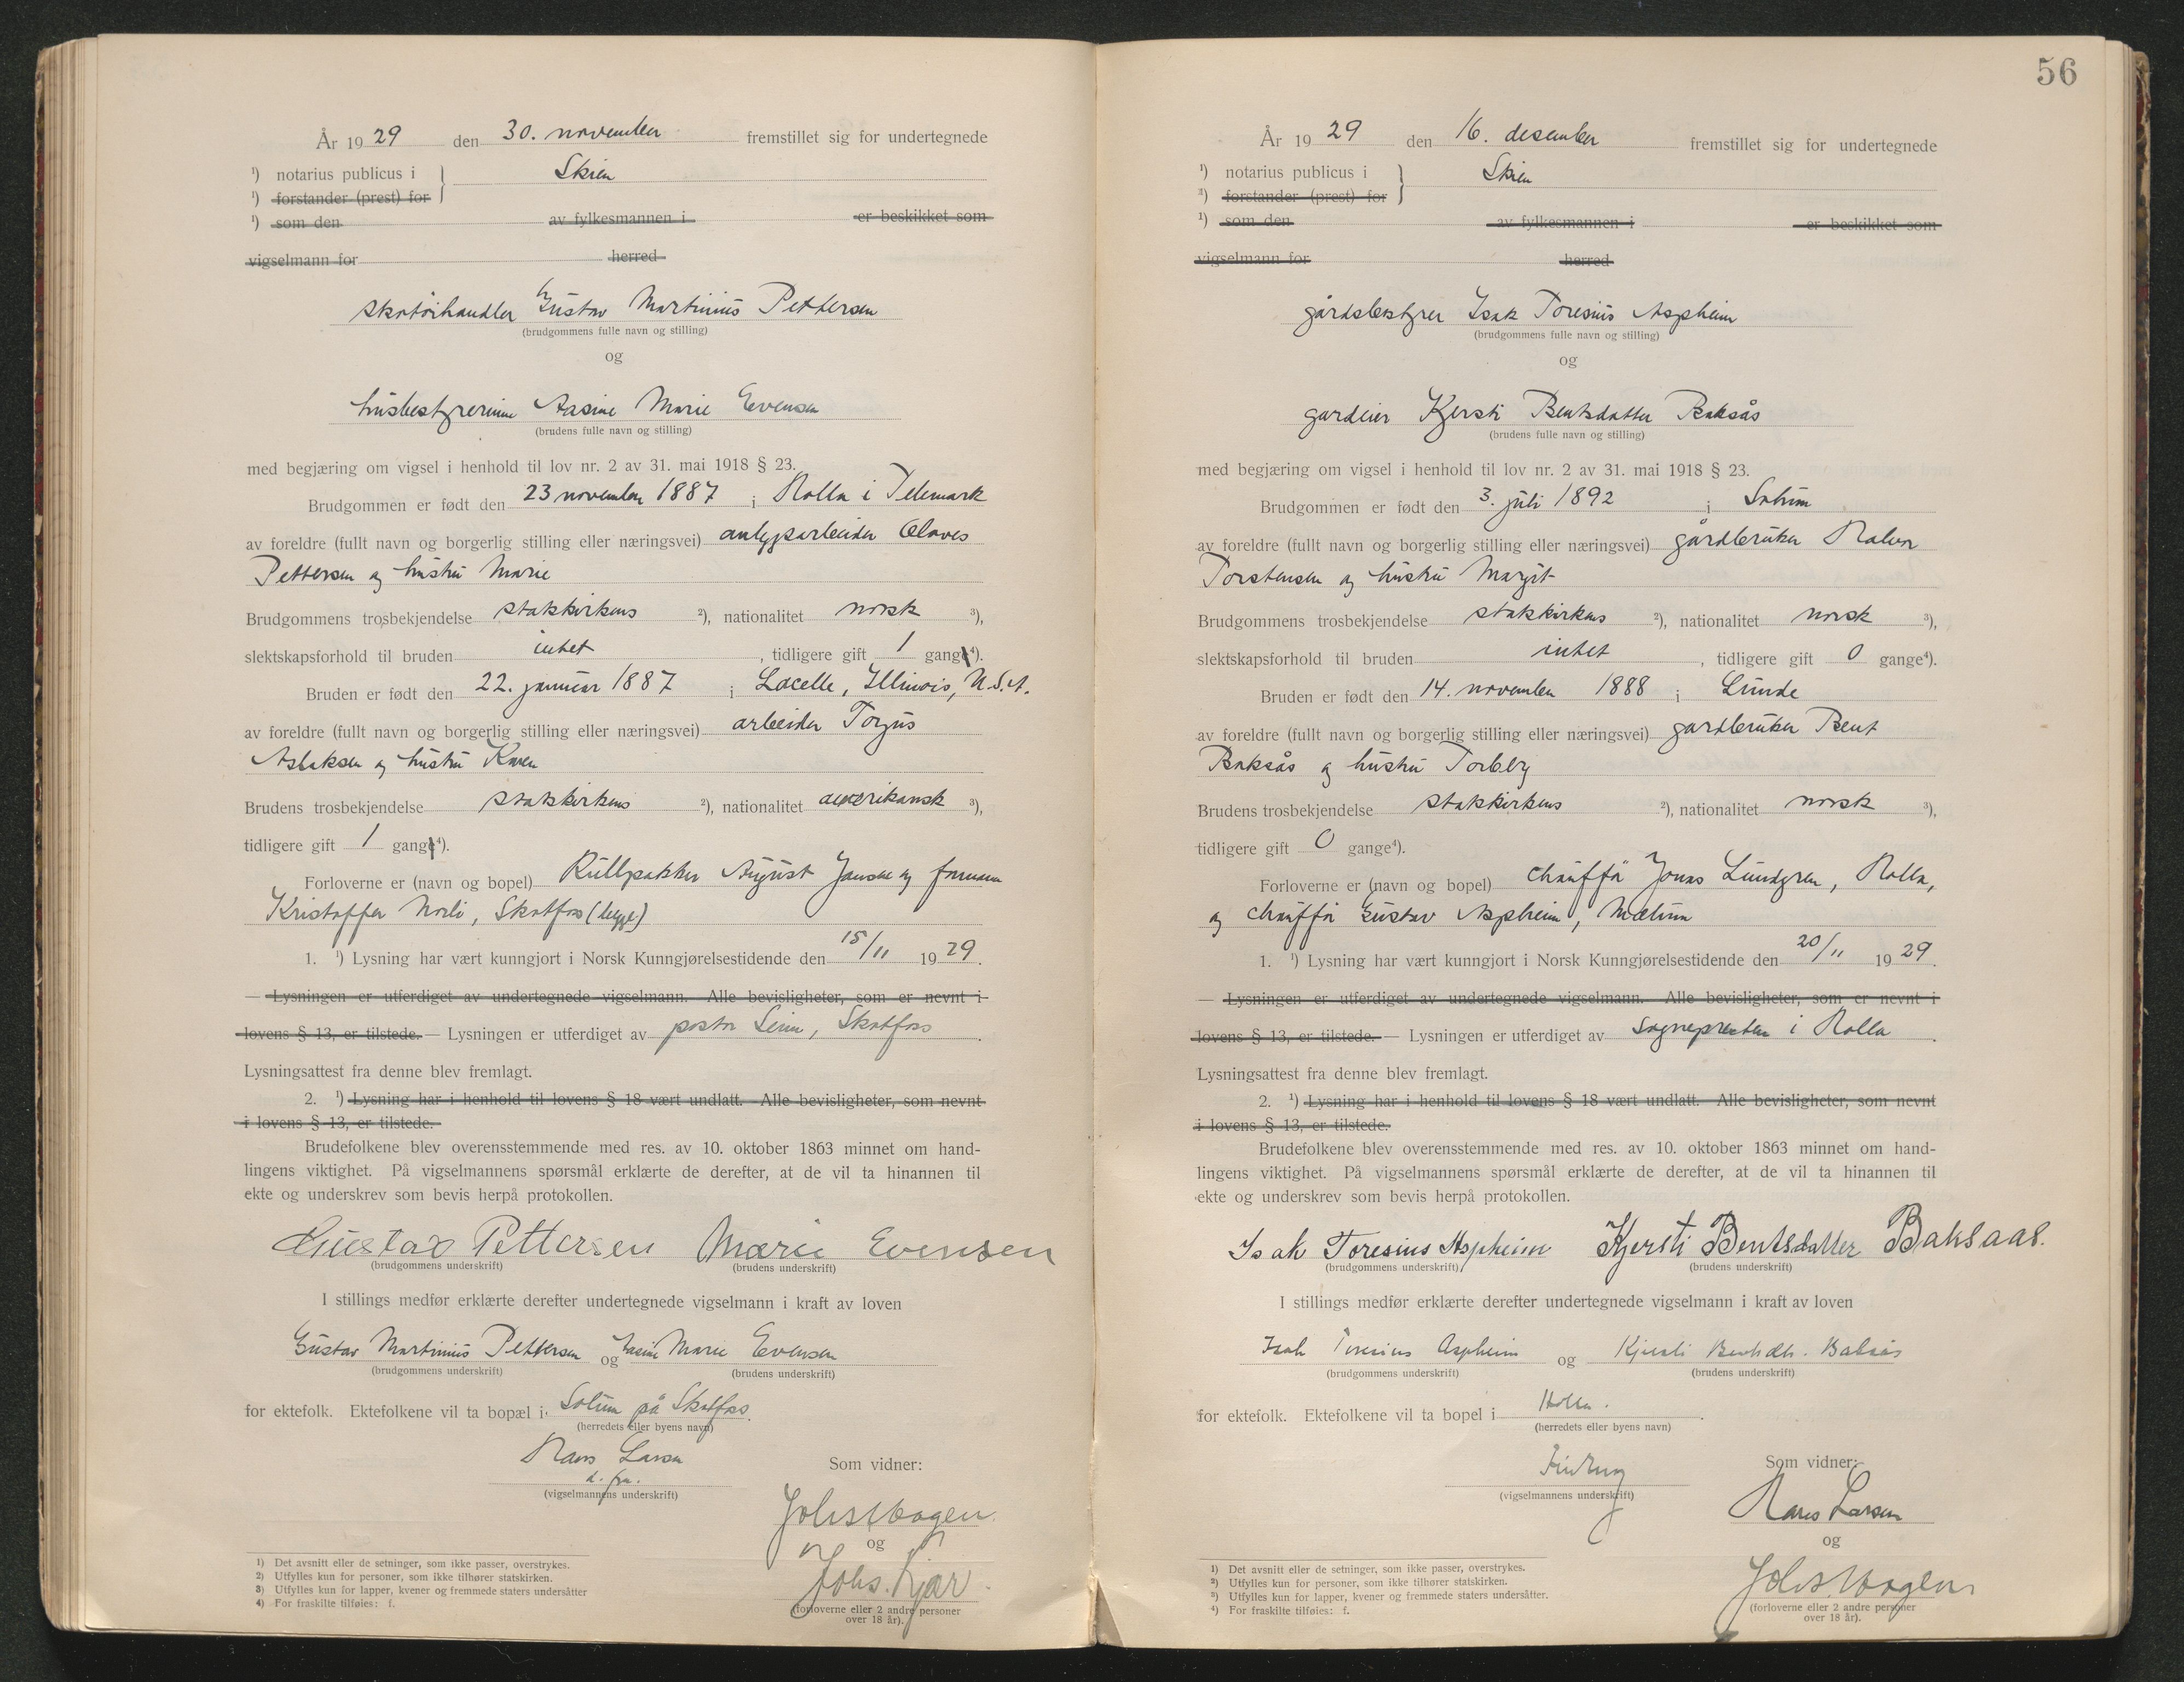 År 1929 den 30. november fremstillet sig for undertegnede
¹) notarius publicus i Skien
¹) forstander (prest) for
¹) som den av fylkesmannen i er beskikket som
vigselmann for herred
skotøihandler Gustav Martinius Pettersen
(brudgommens fulle navn og stilling)
og
husbestyrerinne Aasine Marie Evensen
(brudens fulle navn og stilling)
med begjæring om vigsel i henhold til lov nr. 2 av 31. mai 1918 § 23.
Brudgommen er født den 23 november 1887 i Holla i Telemark
av foreldre (fullt navn og borgerlig stilling eller næringsvei) anlegsarbeider Olaves
Pettersen og hustru Marie
Brudgommens trosbekjendelse statskirkens ²), nationalitet norsk ³),
slektskapsforhold til bruden intet, tidligere gift 1 gang ⁴).
Bruden er født den 22. januar 1887 i Lacelle, Illinois, U.S.A.
av foreldre (fullt navn og borgerlig stilling eller næringsvei) arbeider Torjus
Aslaksen og hustru Karen
Brudens trosbekjendelse statskirkens ²), nationalitet amerikansk ³),
tidligere gift 1 gang ⁴).
Forloverne er (navn og bopel) Rullpakker August Jansen og formann
Kristoffer Norli, Skotfoss (begge)
1. ¹) Lysning har vært kunngjort i Norsk Kunngjørelsestidende den 15/11 1929.
— Lysningen er utferdiget av undertegnede vigselmann. Alle bevisligheter, som er nevnt i
lovens § 13, er tilstede. — Lysningen er utferdiget av pastor Leim, Skotfoss.
Lysningsattest fra denne blev fremlagt.
2. ¹) Lysning har i henhold til lovens § 18 vært undlatt. Alle bevisligheter, som nevnt
i lovens § 13, er tilstede.
Brudefolkene blev overensstemmende med res. av 10. oktober 1863 minnet om hand-
lingens viktighet. På vigselmannens spørsmål erklærte de derefter, at de vil ta hinannen til
ekte og underskrev som bevis herpå protokollen.
Gustav Pettersen Marie Evensen
(brudgommens underskrift) (brudens underskrift)
I stillings medfør erklærte derefter undertegnede vigselmann i kraft av loven
Gustav Martinius Pettersen og Aasine Marie Evensen
(brudgommens underskrift) (brudens underskrift)
for ektefolk. Ektefolkene vil ta bopæl i Solum på Skotfoss.
(herredets eller byens navn)
Hans Larsen
d. fm.
(vigselmannens underskrift)
Som vidner:
Johs Wogen.
og
Johs. Kjær.
(forloverne eller 2 andre personer
over 18 år).
1) Det avsnitt eller de setninger, som ikke passer, overstrykes.
2) Utfylles kun for personer, som ikke tilhører statskirken.
3) Utfylles kun for lapper, kvener og fremmede staters undersåtter
4) For fraskilte tilføies: f.
56
År 1929 den 16. desember fremstillet sig for undertegnede
¹) notarius publicus i Skien
²) forstander (prest) for
¹) som den av fylkesmannen i er beskikket som
vigselmann for herred
gårdsbestyrer Isak Toresius Aspheim
(brudgommens fulle navn og stilling)
og
gardeier Kjersti Bentsdatter Baksås
(brudens fulle navn og stilling)
med begjæring om vigsel i henhold til lov nr. 2 av 31. mai 1918 § 23.
Brudgommen er født den 3. juli 1892 i Solum
av foreldre (fullt navn og borgerlig stilling eller næringsvei) gårdbruker Halvor
Torstensen og hustru Margit
Brudgommens trosbekjendelse statskirkens ²), nationalitet norsk ³),
slektskapsforhold til bruden intet, tidligere gift 0 gange⁴).
Bruden er født den 14. november 1888 i Lunde
av foreldre (fullt navn og borgerlig stilling eller næringsvei) gardbruker Bent
Baksås og hustru Torbjøg
Brudens trosbekjendelse statskirkens ²), nationalitet norsk ³),
tidligere gift 0 gange⁴).
Forloverne er (navn og bopel) chauffør Jonas Lundgren, Holla,
og chauffør Gustav Aspheim, Mælum
1. ¹) Lysning har vært kunngjort i Norsk Kunngjørelsestidende den 20/11 1929.
— Lysningen er utferdiget av undertegnede vigselmann. Alle bevisligheter, som er nevnt i
lovens § 13, er tilstede. — Lysningen er utferdiget av sognepresten i Holla.
Lysningsattest fra denne blev fremlagt.
2. ¹) Lysning har i henhold til lovens § 18 vært undlatt. Alle bevisligheter, som nevnt
i lovens § 13, er tilstede.
Brudefolkene blev overensstemmende med res. av 10. oktober 1863 minnet om hand-
lingens viktighet. På vigselmannens spørsmål erklærte de derefter, at de vil ta hinannen til
ekte og underskrev som bevis herpå protokollen.
Isak Toresius Aspheim Kjersti Bentsdatter Baksaas.
(brudgommens underskrift) (brudens underskrift)
I stillings medfør erklærte derefter undertegnede vigselmann i kraft av loven
Isak Toresius Aspheim og Kjersti Bentsdtr. Baksås
(brudgommens underskrift) (brudens underskrift)
for ektefolk. Ektefolkene vil ta bopel i Holla.
(herredets eller byens navn)
(vigselmannens underskrift)
Som vidner:
Hans Larsen
og
Johs Wogen
(forloverne eller 2 andre personer
over 18 år).
¹) Det avsnitt eller de setninger, som ikke passer, overstrykes.
²) Utfylles kun for personer, som ikke tilhører statskirken.
³) Utfylles kun for lapper, kvener og fremmede staters undersåtter.
⁴) For fraskilte tilføies: f.